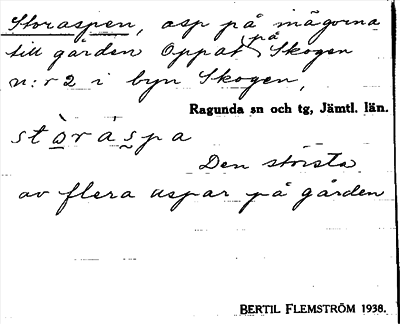 Storaspen, asp på mågorna
till gården Oppat på Skogen
n:r 2 i byn Skogen,
Ragunda sn och tg, Jämtl. län.
stòráspa
Den största
av flera aspar på gården
BERTIL FLEMSTRÖM 1938.